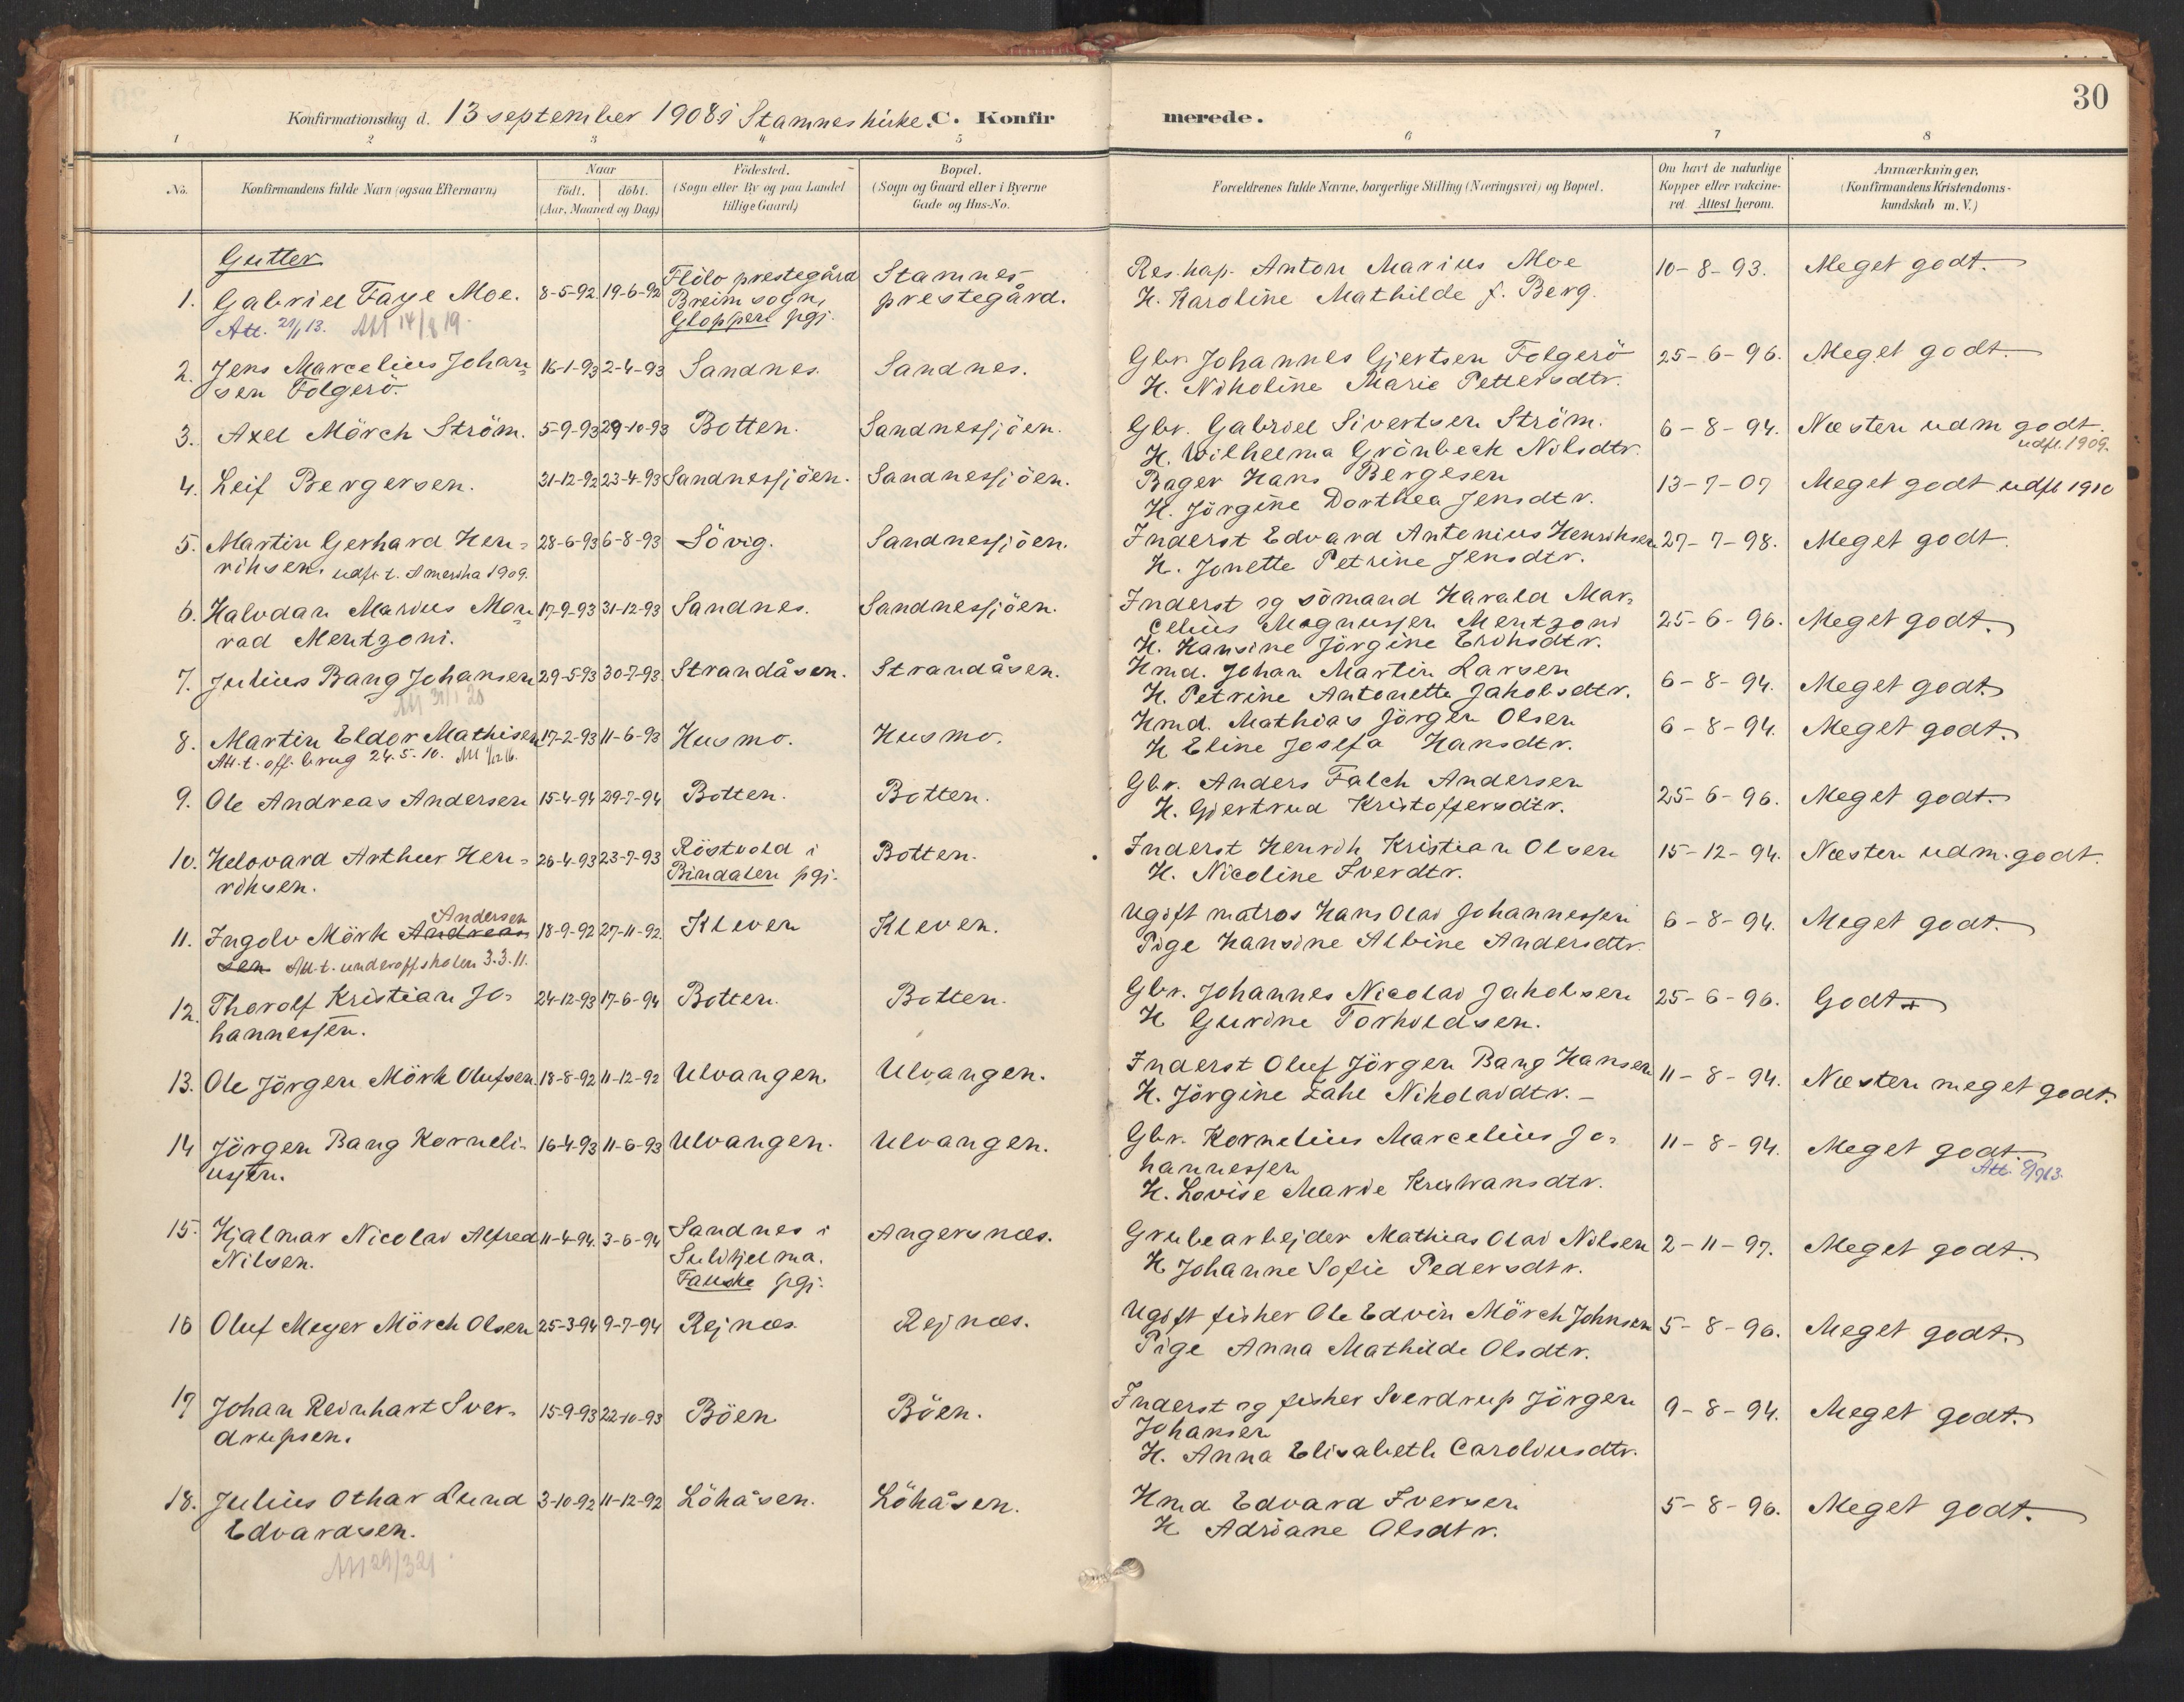 30
Konfirmationsdag d. 13 september 1908 i Stamnes kirke. C. Konfirmerede.
1 2 3 4 5 6 7 8
No.
Konfirmandens fulde Navn (ogsaa Efternavn)
Naar
födt. döbt.
(Aar, Maaned og Dag)
Födested.
(Sogn eller By og paa Landet
tillige Gaard)
Bopæl.
(Sogn og Gaard eller i Byerne
Gade og Hus-No.
Forældrenes fulde Navne, borgerlige Stilling (Næringsvei) og Bopæl.
Om havt de naturlige
Kopper eller vakcine-
ret. Attest herom.
Anmærkninger.
(Konfirmandens Kristendoms-
kundskab m. V.)
Gutter
1. Gabriel Faye Moe. 8-5-92 19-6-92 Flölo prestegård Stamnes Res. kap. Anton Marius Moe 10-8-93. Meget godt.
Breim sogn, prestegård. H. Karoline Mathilde f. Berg.
Gloppen pgj.
Att. 14/8 19.
2. Jens Marcelius Johan= 16-1-93 2-4-93 Sandnes. Sandnes. Gbr. Johannes Gjertsen Folgerö 25-6-96. Meget godt.
sen Folgerö. H. Nikoline Marie Pettersdtr.
3. Axel Mörch Ström. 5-9-93 29-10-93 Botten. Sandnessjöen. Gbr. Gabriel Sivertsen Ström. 6-8-94. Næsten udm godt.
H. Wilhelma Grönbeck Nilsdtr. udfl. 1909.
4. Leif Bergersen. 31-12-92 23-4-93 Sandnessjöen. Sandnessjöen. Bager Hans Bergesen 13-7-07 Meget godt udfl 1910
H. Jörgine Dorthea Jensdtr.
5. Martin Gerhard Hen= 28-6-93 6-8-93 Sövig. Sandnessjöen. Inderst Edvard Antonius Henriksen 27-7-98. Meget godt.
riksen. udfl. t. Amerika 1909. H. Jonette Petrine Jensdtr.
6. Halvdan Marius Kon= 17-9-93 31-12-93 Sandnes. Sandnessjöen. Inderst og sömand Harald Mar= 25-6-96. Meget godt.
rad Mentzoni. celius Magnussen Mentzoni
H. Hansine Jörgine Eriksdtr.
7. Julius Bang Johansen 29-5-93 30-7-93. Strandåsen. Strandåsen. Hmd. Johan Martin Larsen 6-8-94. Meget godt.
H. Petrine Antonette Jakobsdtr.
8. Martin Eldor Mathisen 17-2-93 11-6-93 Husmo. Husmo. Hmd. Mathias Jörgen Olsen 6-8-94. Meget godt.
Att. t. off. brug 24.5.10. H Eline Josefa Hansdtr.
9. Ole Andreas Andersen 15-4-94 29-7-94 Botten. Botten. Gbr. Anders Falch Andersen 25-6-96. Meget godt.
H. Gjertrud Kristoffersdtr.
10. Helovard Arthur Hen= 26-4-93 23-7-93 Röstvold i Botten. Inderst Henrik Kristian Olsen 15-12-94. Næsten udm. godt.
riksen. Bindalen pgj. H. Nicoline Iverdtr.
11. Ingolv Mörk Andreas Andersen 18-9-92 27-11-92. Kleven Kleven. Ugift matros Hans Olai Johannessen 6-8-94. Meget godt.
sen Att. t. underoffskolen 3.3.11. Pige Hansine Albine Andersdtr.
12. Thorolf Kristian Jo= 24-12-93 17-6-94 Botten. Botten. Gbr. Johannes Nicolai Jakobsen 25-6-96. Godt+
hannessen. H Gurine Torkildsen.
13. Ole Jörgen Mörk Olufsen. 18-8-92 11-12-92 Ulvangen. Ulvangen. Inderst Oluf Jörgen Bang Hansen 11-8-94. Næsten meget godt.
H. Jörgine Zahl Nikolaidtr.–
14 Jörgen Bang Korneli- 16-4-93 11-6-93 Ulvangen. Ulvangen. Gbr. Kornelius Marcelius Jo= 11-8-94. Meget godt.
ussen. hannessen
H. Lovise Marie Kristiansdtr.
15. Hjalmar Nicolai Alfred 11-4-94. 3-6-94 Sandnes i Angersnæs. Grubearbejder Mathias Olai Nilsen 2-11-97. Meget godt.
Nilsen. Sulitjelma. H Johanne Sofie Pedersdtr.
Fauske pgj.
16 Oluf Meyer Mörch Olsen 25-3-94 9-7-94 Rejnæs. Rejnæs. Ugift fisker Ole Edvin Mörch Johnsen 5-8-96. Meget godt.
Pige Anna Mathilde Olsdtr.
17 Johan Reinhart Sver= 15-9-93 22-10-93 Böen Böen. Inderst og fisker Sverdrup Jörgen 9-8-94. Meget godt.
drupsen. Johansen
H. Anna Elisabeth Caroliusdtr.
18. Julius Othar Lund 3-10-92 11-12-92 Lökåsen. Lökåsen. Hmd Edvard Iversen 5-8-96. Meget godt.
Edvardsen. H Adriane Olsdtr.